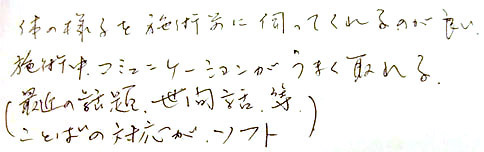 体の様子を施術前に伺ってくれるのが良い。
施術中、コミュニケーションがうまく取れる。
(最近の話題、世間話、等、
ことばの対応が、ソフト)